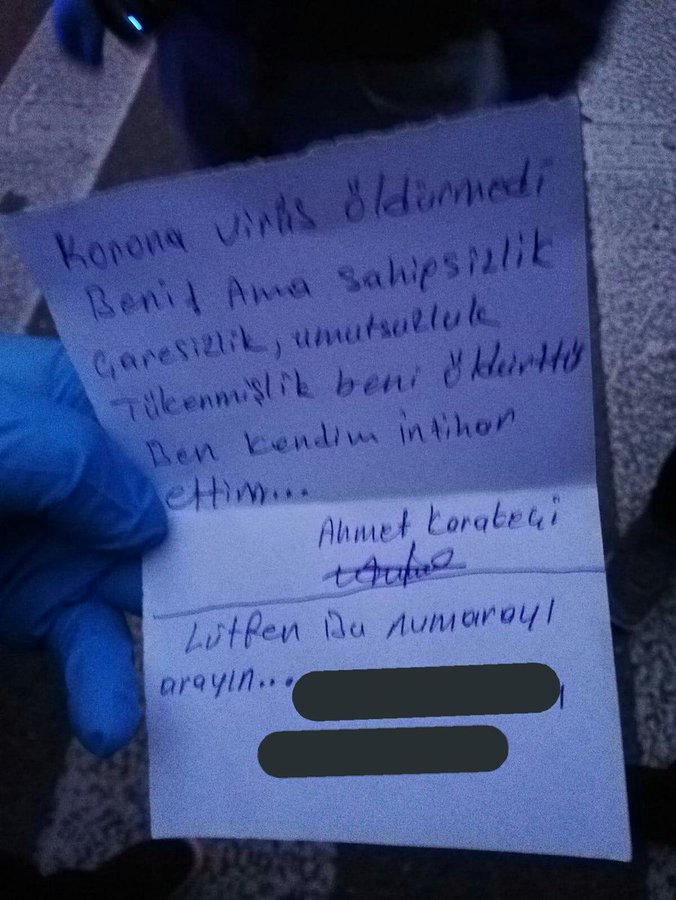 Korona virüs öldürmedi
Beni! Ama sahipsizlik
Çaresizlik, umutsuzluk
Tükenmişlik beni öldürttü
Ben kendim intihar
ettim...
Ahmet Karabeçi
Lütfen Bu numarayı
arayın...